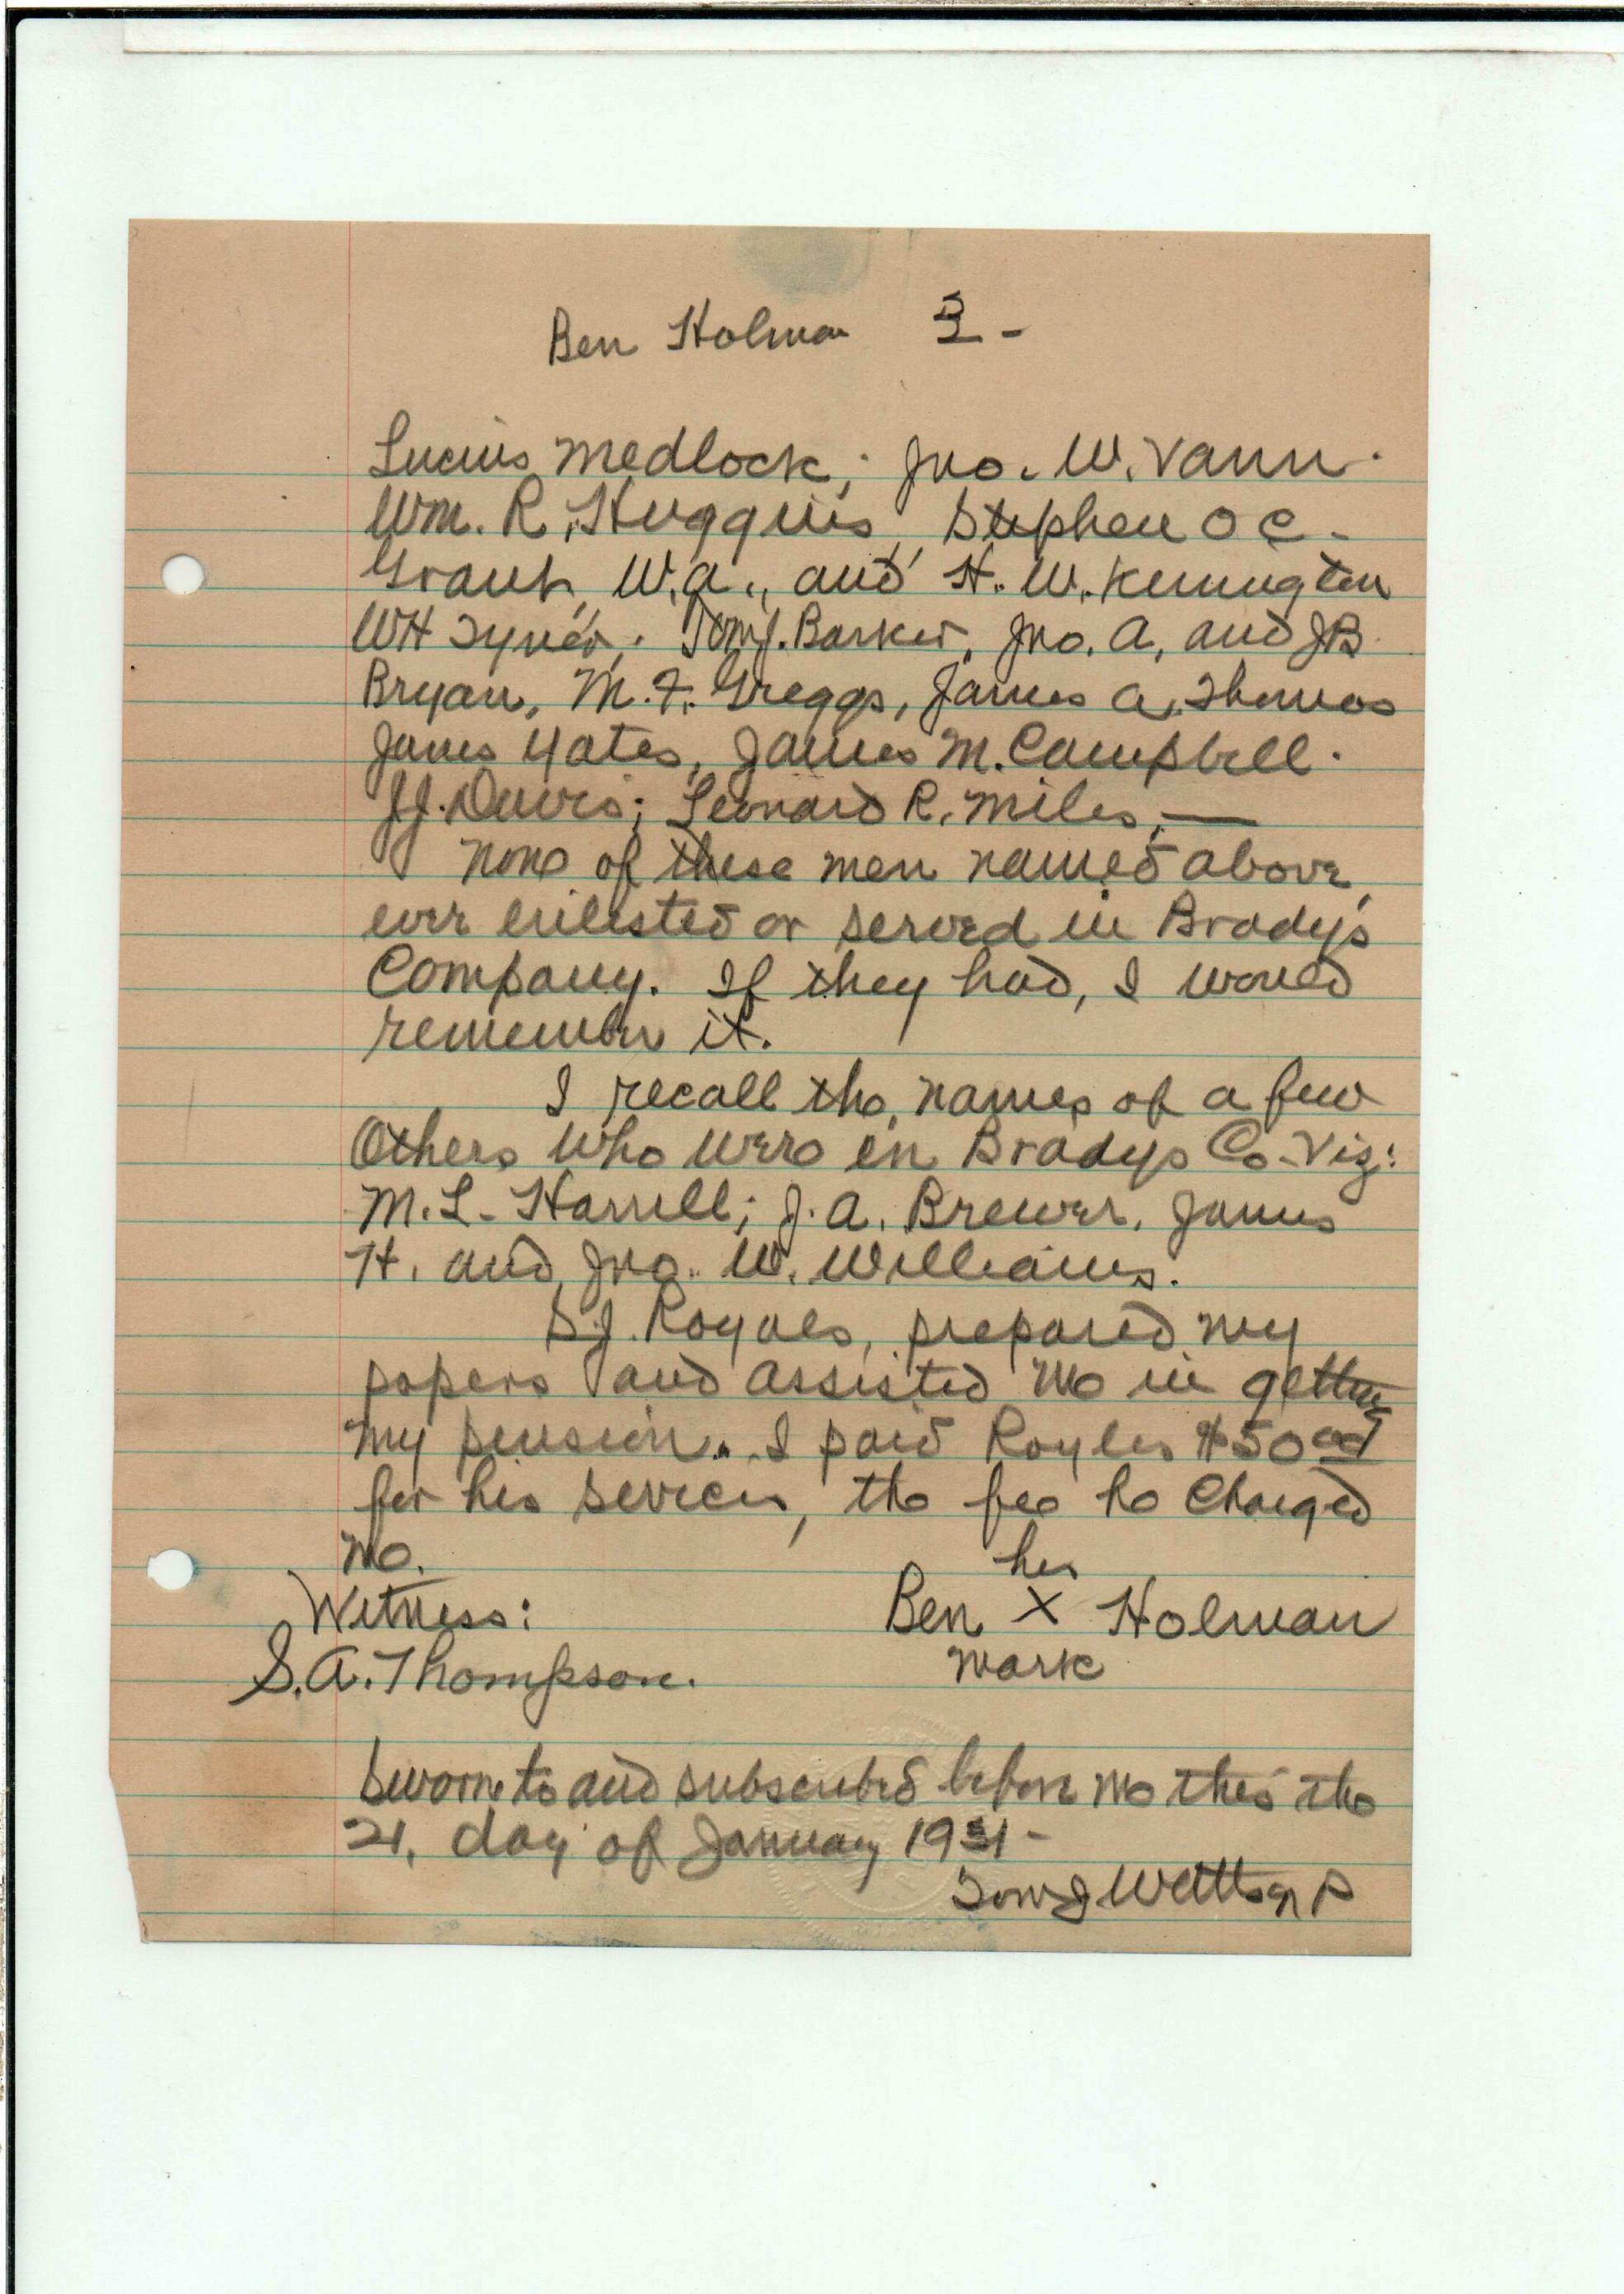 Ben Holman 3-
Lucius Medlock; Jno. W. Vann.
Wm. R. Huggins, Stephen O C.
Grant, W.A., and H. W. Kennington
WH Tyner. Tom J. Barker, Jno. A, and JB
Bryan, M. F. Greggs, James A. Thomas
James Yates, James M. Campbell.
JJ. Davis; Leonard R. Miles,—
None of these men named above,
ever enlisted or served in Bradys
Company. If they had, I would
remember it.
I recall the names of a few
Others who were in Bradys Co-Viz:
M. L. Harrell; J. A. Brewer, James
H. and Jno. W. Williams.
S.J. Royals, prepared my
papers and assisted me in getting
my pension. I paid Royles $50 00
for his services, the fee he charged
me.
his
Witness: Ben X Holman
S. A. Thompson. mark
Sworn to and subscribed before me this the
21, day of January 1931-
Tom J N P